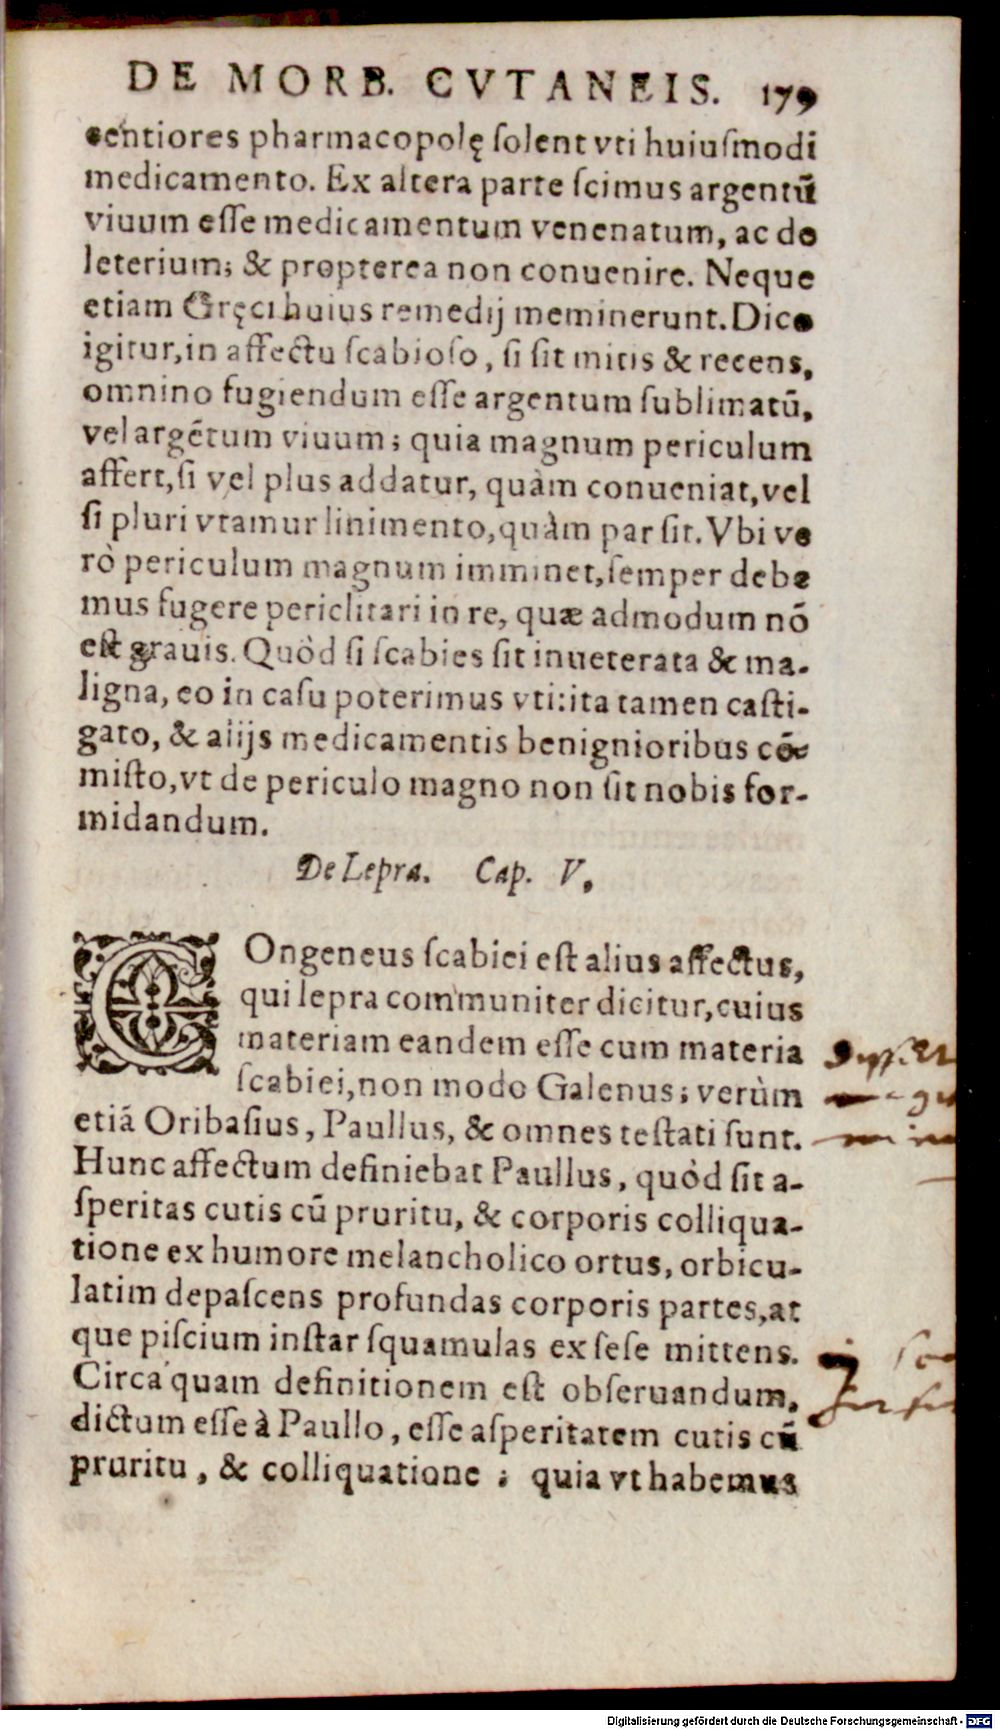 DE MORB. CVTANEIS. 179
centiores pharmacopolę ſolent vti huiuſmodi
medicamento. Ex altera parte ſcimus argentū
viuum eſſe medicamentum venenatum, ac de
leterium; & propterea non conuenire. Neque
etiam Gręci huius remedij meminerunt. Dico
igitur, in affectu ſcabioſo, ſi ſit mitis & recens,
omnino fugiendum eſſe argentum ſublimatū,
vel argētum viuum; quia magnum periculum
affert, ſi vel plus addatur, quàm conueniat, vel
ſi pluri vtamur linimento, quàm par ſit. Vbi ve
rò periculum magnum imminet, ſemper debe
mus fugere periclitari in re, quæ admodum nō
eſt grauis. Quòd ſi ſcabies ſit inueterata & ma-
ligna, eo in caſu poterimus vti: ita tamen caſti-
gato, & alijs medicamentis benignioribus cō-
miſto, vt de periculo magno non ſit nobis for-
midandum.
De Lepra. Cap. V.
COngeneus ſcabiei eſt alius affectus,
qui lepra communiter dicitur, cuius
materiam eandem eſſe cum materia
ſcabiei, non modo Galenus; verùm
etiā Oribaſius, Paullus, & omnes teſtati ſunt.
Hunc affectum definiebat Paullus, quòd ſit a-
ſperitas cutis cū pruritu, & corporis colliqua-
tione ex humore melancholico ortus, orbicu-
latim depaſcens profundas corporis partes, at
que piſcium inſtar ſquamulas ex ſeſe mittens.
Circa quam definitionem eſt obſeruandum,
dictum eſſe à Paullo, eſſe aſperitatem cutis cū
pruritu, & colliquatione; quia vt habemus
Digitalisierung gefördert durch die Deutsche Forschungsgemeinschaft - DFG